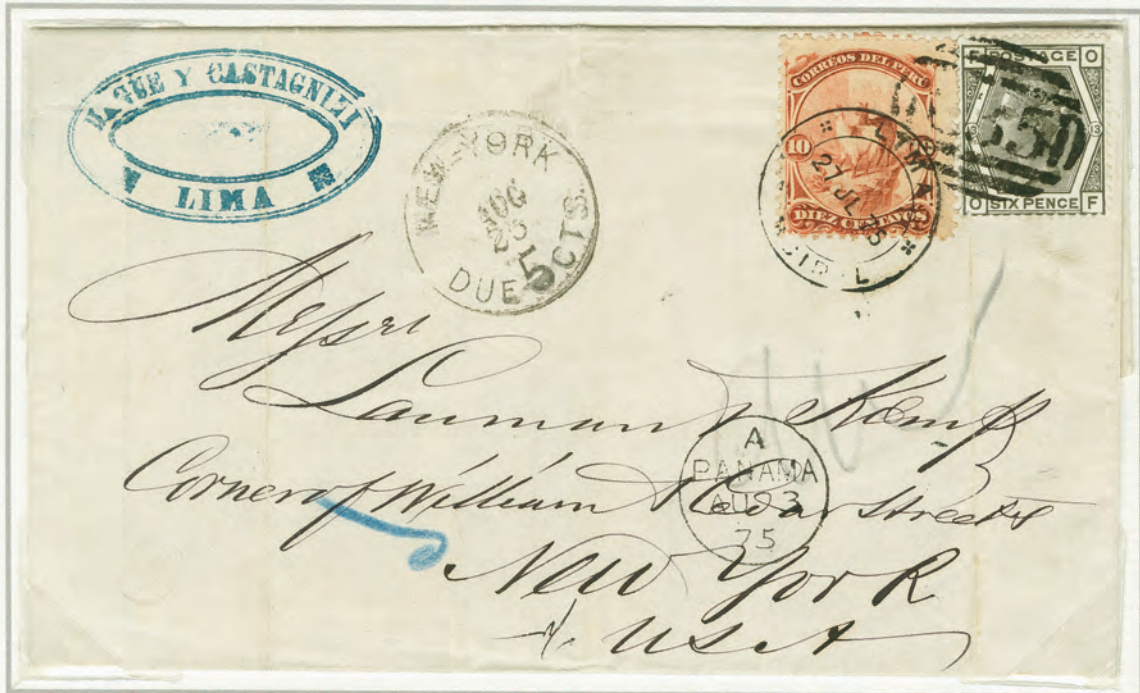 Y CASTAGNINI
LIMA
NEW-YORK
AUG
25
DUE 5 CTS
CORREOS DEL PERU
10
DIEZ CENTAVOS
LIMA
27 JL 75
F POSTAGE O
13 13
O SIX PENCE F
Messrs
Lanman & Kemp
Corner of William & Cedar Streets
New York
USA
A
PANAMA
AU 3
75